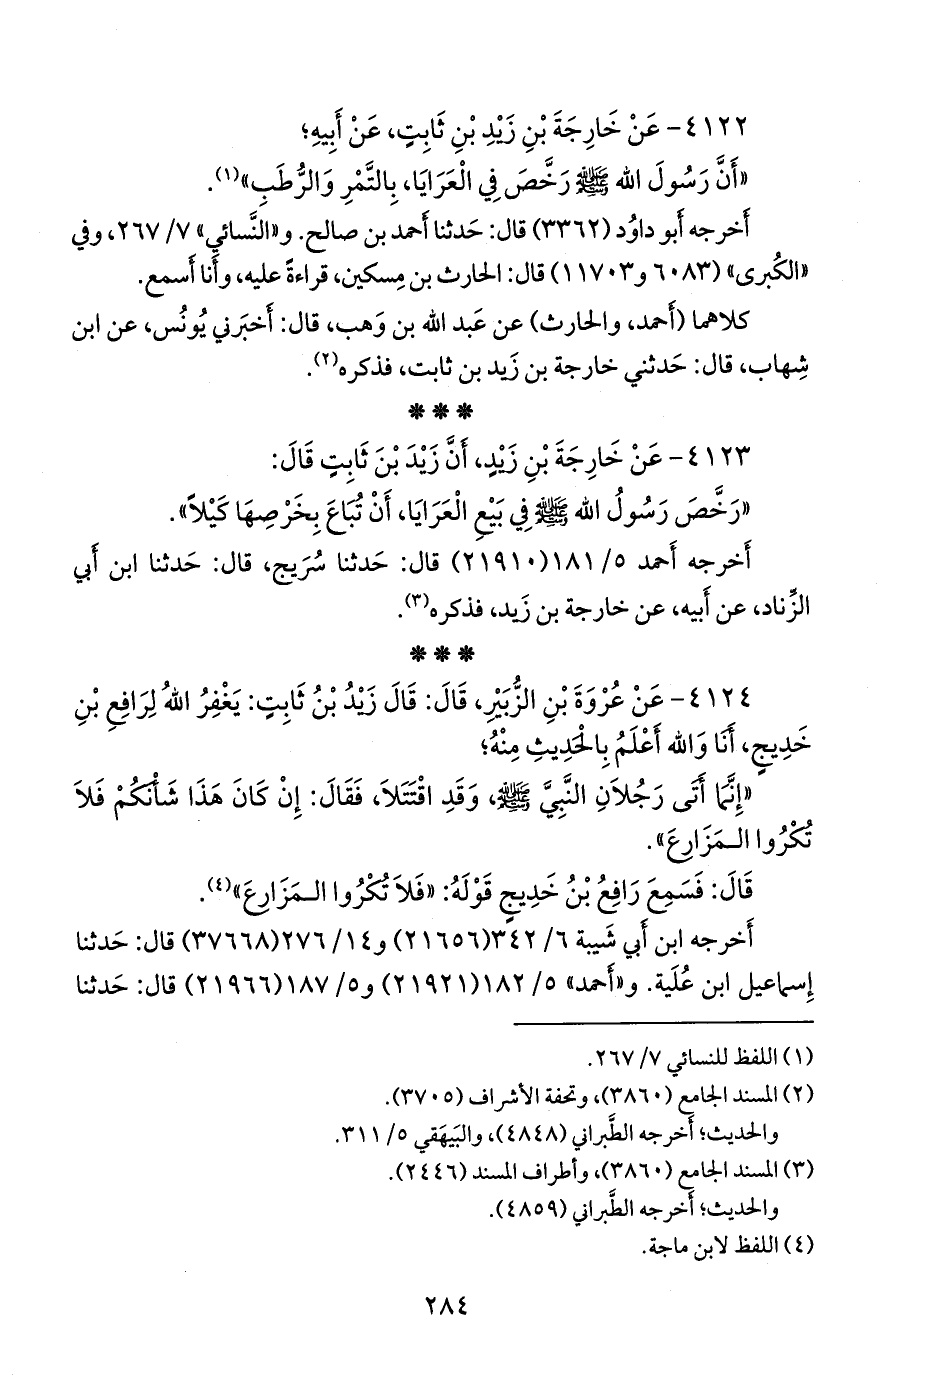 ٤١٢٢- عَنْ خَارِجَةَ بْنِ زَيْدِ بْنِ ثَابِتٍ، عَنْ أَبِيهِ؛
«أَنَّ رَسُولَ الله ﷺ رَخَّصَ فِي الْعَرَايَا، بِالتَّمْرِ وَالرُّطَبِ»(١).
أَخرجه أَبو داوُد (٣٣٦٢) قال: حَدثنا أَحمد بن صالح. و«النَّسائي» ٧/ ٢٦٧، وفي
«الكُبرى» (٦٠٨٣ و١١٧٠٣) قال: الحارث بن مِسكين، قراءةً عليه، وأَنا أَسمع.
كلاهما (أَحمد، والحارث) عن عَبد الله بن وَهب، قال: أَخبَرني يُونُس، عن ابن
شِهاب، قال: حَدثني خارجة بن زَيد بن ثابت، فذكره(٢).
***
٤١٢٣- عَنْ خَارِجَةَ بْنِ زَيْدٍ، أَنَّ زَيْدَ بْنَ ثَابِتٍ قَالَ:
«رَخَّصَ رَسُولُ الله ﷺ فِي بَيْعِ الْعَرَايَا، أَنْ تُبَاعَ بِخَرْصِهَا كَيْلاً».
أَخرجه أَحمد ٥/ ١٨١(٢١٩١٠) قال: حَدثنا سُرَيج، قال: حَدثنا ابن أَبي
الزِّناد، عن أَبيه، عن خارجة بن زَيد، فذكره(٣).
***
٤١٢٤- عَنْ عُرْوَةَ بْنِ الزُّبَيْرِ، قَالَ: قَالَ زَيْدُ بْنُ ثَابِتٍ: يَغْفِرُ اللهُ لِرَافِعِ بْنِ
خَدِيجٍ، أَنَا وَالله أَعْلَمُ بِالْحَدِيثِ مِنْهُ؛
«إِنَّمَا أَتَى رَجُلاَنِ النَّبِيَّ ﷺ، وَقَدِ اقْتَتَلاَ، فَقَالَ: إِنْ كَانَ هَذَا شَأْنَكُمْ فَلاَ
تُكْرُوا الـمَزَارِعَ».
قَالَ: فَسَمِعَ رَافِعُ بْنُ خَدِيجٍ قَوْلَهُ: «فَلاَ تُكْرُوا الـمَزَارِعَ»(٤).
أَخرجه ابن أَبي شَيبة ٦/ ٣٤٢(٢١٦٥٦) و١٤/ ٢٧٦(٣٧٦٦٨) قال: حَدثنا
إِسماعيل ابن عُلَية. و«أَحمد» ٥/ ١٨٢(٢١٩٢١) و٥/ ١٨٧(٢١٩٦٦) قال: حَدثنا
(١) اللفظ للنسائي ٧/ ٢٦٧.
(٢) المسند الجامع (٣٨٦٠)، وتحفة الأشراف (٣٧٠٥).
والحديث؛ أَخرجه الطَّبراني (٤٨٤٨)، والبَيهَقي ٥/ ٣١١.
(٣) المسند الجامع (٣٨٦٠)، وأطراف المسند (٢٤٤٦).
والحديث؛ أَخرجه الطَّبراني (٤٨٥٩).
(٤) اللفظ لابن ماجة.
٢٨٤